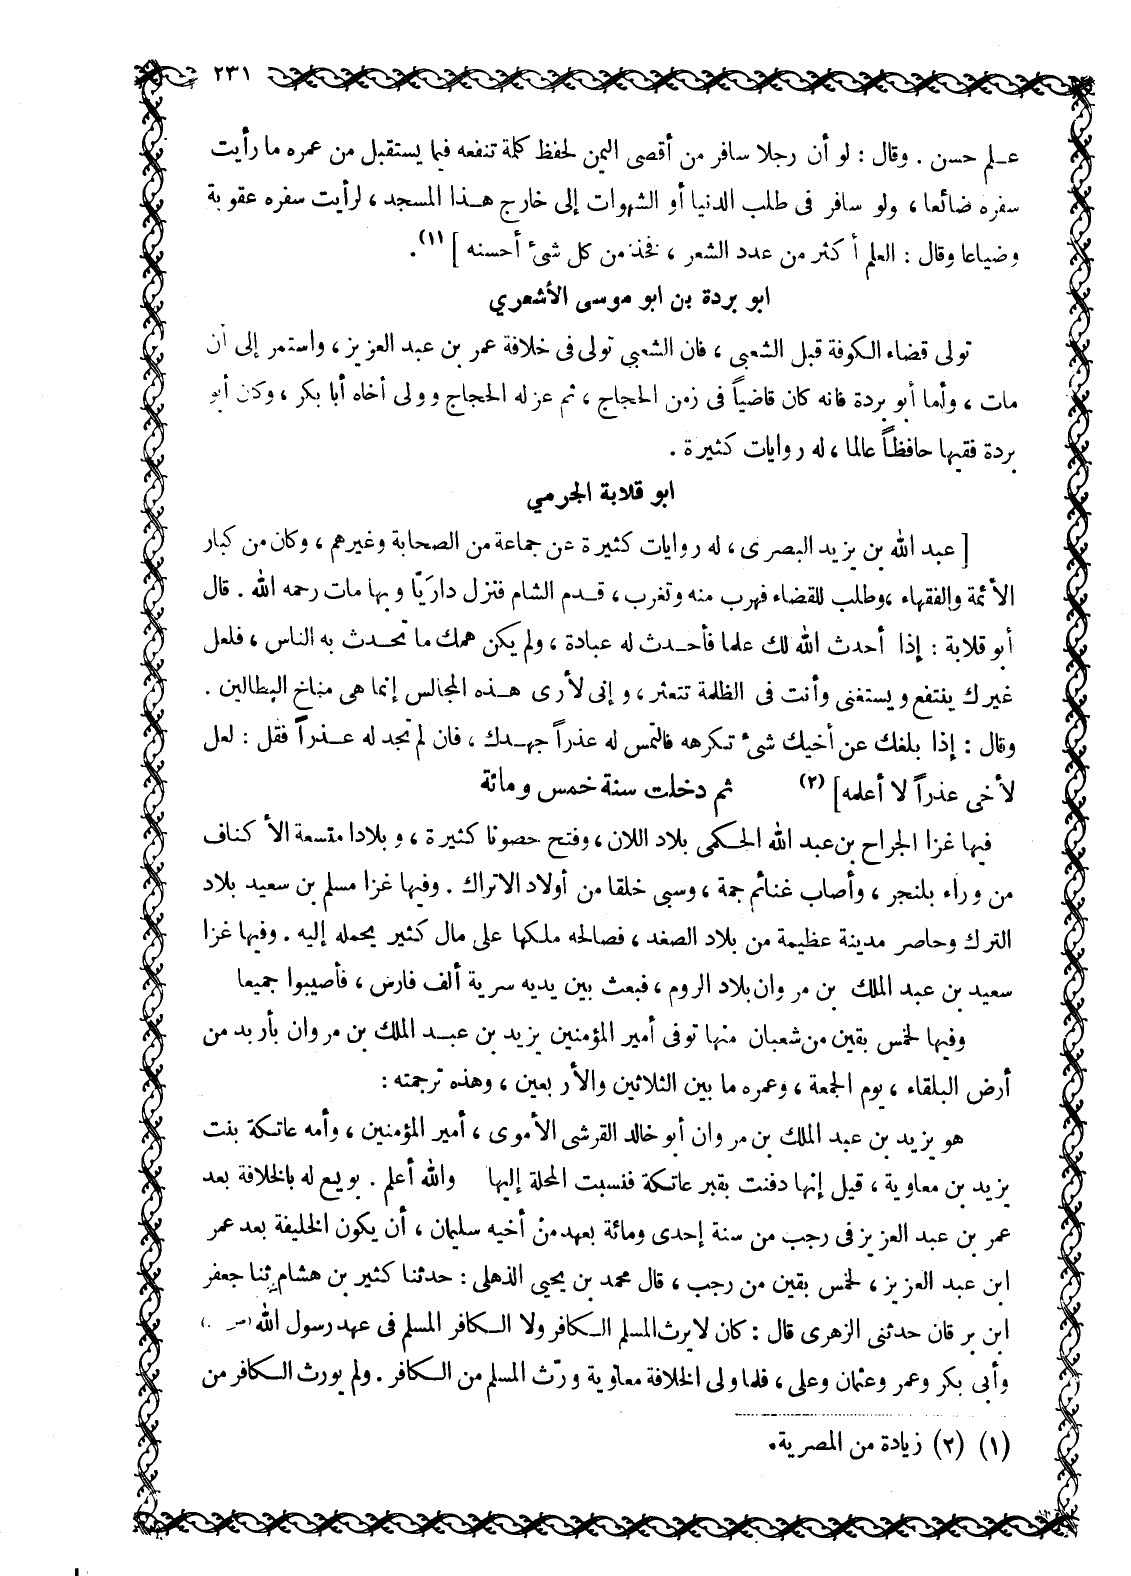 ٢٣١
عـلم حسن . وقال : لو أن رجلا سافر من أقصى اليمن لحفظ كلمة تنفعه فيما يستقبل من عمره ما رأيت
سفره ضائعا ، ولو سافر فى طلب الدنيا أو الشهوات إلى خارج هـذا المسجد ، لرأيت سفره عقوبة
وضياعا وقال : العلم أكثر من عدد الشعر ، فخذ من كل شىء أحسنه ] (١).
ابو بردة بن ابو موسى الأشعري
تولى قضاء الكوفة قبل الشعبى ، فان الشعبي تولى فى خلافة عمر بن عبد العزيز ، واستمر إلى أن
مات ، وأما أبو بردة فانه كان قاضياً فى زمن الحجاج ، ثم عزله الحجاج وولى أخاه أبا بكر ، وكان أبو
بردة فقيها حافظاً عالما ، له روايات كثيرة .
ابو قلابة الجرمي
[ عبد الله بن يزيد البصرى ، له روايات كثيرة عن جماعة من الصحابة وغيرهم ، وكان من كبار
الأئمة والفقهاء ،وطلب للقضاء فهرب منه وتغرب ، قـدم الشام فنزل داريّا وبها مات رحمه الله . قال
أبو قلابة : إذا أحدث الله لك علما فأحـدث له عبادة ، ولم يكن همك ما تحـدث به الناس ، فلعل
غيرك ينتفع ويستغنى وأنت فى الظلمة تتعثر ، وإنى لأرى هـذه المجالس إنما هى مناخ البطالين .
وقال : إذا بلغك عن أخيك شىء تكرهه فالتمس له عذراً جهـدك ، فان لم تجد له عـذراً فقل : لعل
لأخى عذراً لا أعلمه] (٢) ثم دخلت سنة خمس ومائة
فيها غزا الجراح بن عبد الله الحكمى بلاد اللان ، وفتح حصونا كثيرة ، وبلادا متسعة الأكناف
من وراء بلنجر ، وأصاب غنائم جمة ، وسبى خلقا من أولاد الاتراك . وفيها غزا مسلم بن سعيد بلاد
الترك وحاصر مدينة عظيمة من بلاد الصغد ، فصالحه ملكها على مال كثير يحمله إليه . وفيها غزا
سعيد بن عبد الملك بن مروان بلاد الروم ، فبعث بين يديه سرية ألف فارس ، فأصيبوا جميعا
وفيها لخمس بقين من شعبان منها توفى أمير المؤمنين يزيد بن عبـد الملك بن مروان بأربد من
أرض البلقاء ، يوم الجمعة ، وعمره ما بين الثلاثين والأربعين ، وهذه ترجمته :
هو يزيد بن عبد الملك بن مروان أبو خالد القرشى الأموى ، أمير المؤمنين ، وأمه عاتكة بنت
يزيد بن معاوية ، قيل إنها دفنت بقبر عاتكة فنسبت المحلة إليها والله أعلم . بويع له بالخلافة بعد
عمر بن عبد العزيز فى رجب من سنة إحدى ومائة بعهد من أخيه سليمان ، أن يكون الخليفة بعد عمر
ابن عبد العزيز ، لخمس بقين من رجب ، قال محمد بن يحيى الذهلى : حدثنا كثير بن هشام ثنا جعفر
ابن برقان حدثنى الزهرى قال : كان لا يرث المسلم الكافر ولا الكافر المسلم فى عهد رسول الله
وأبى بكر وعمر وعثمان وعلى ، فلما ولى الخلافة معاوية ورّث المسلم من الكافر . ولم يورث الكافر من
(١) (٢) زيادة من المصرية.